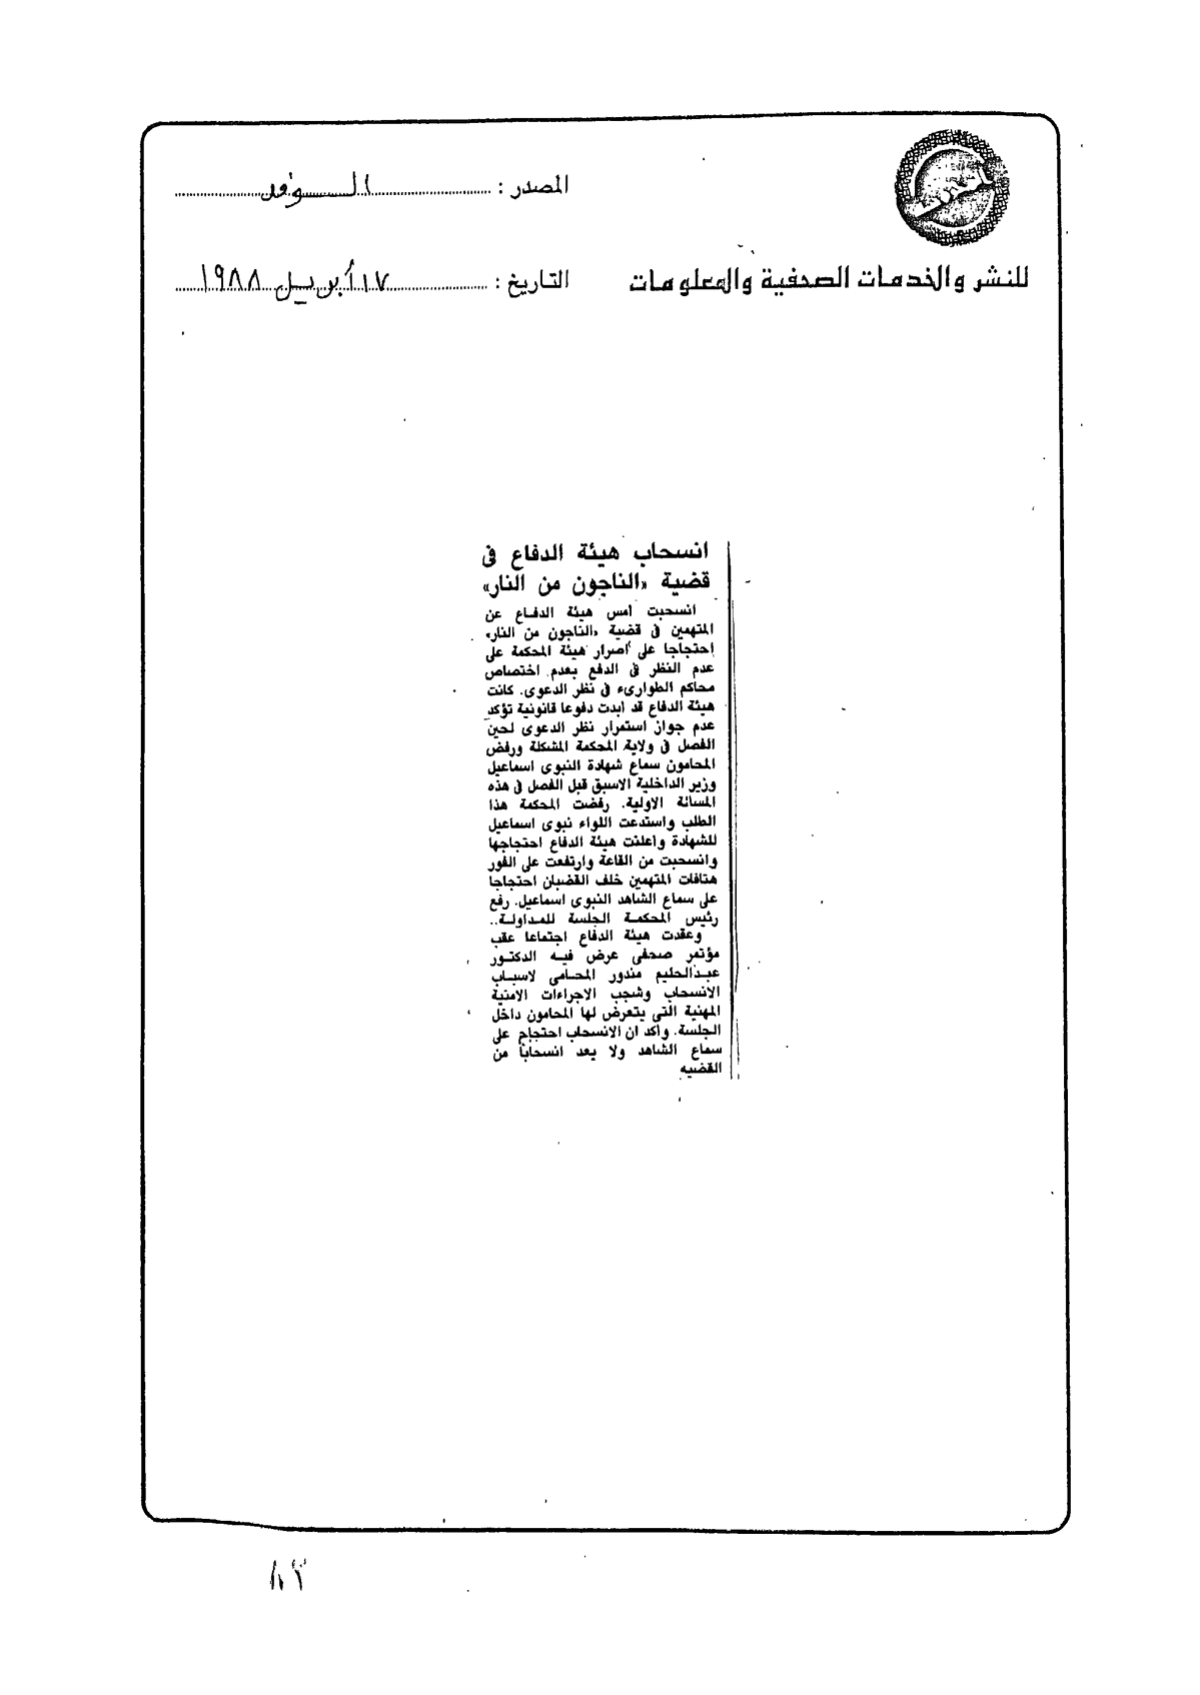 المصدر : الوفد
للنشر والخدمات الصحفية والمعلومات
التاريخ : ١٧ أبريل ١٩٨٨
انسحاب هيئة الدفاع فى
قضية «الناجون من النار»
انسحبت امس هيئة الدفاع عن
المتهمين فى قضية «الناجون من النار»
إحتجاجا على اصرار هيئة المحكمة على
عدم النظر فى الدفع بعدم اختصاص
محاكم الطوارىء فى نظر الدعوى. كانت
هيئة الدفاع قد ابدت دفوعا قانونية تؤكد
عدم جواز استمرار نظر الدعوى لحين
الفصل فى ولاية المحكمة المشكلة ورفض
المحامون سماع شهادة النبوى اسماعيل
وزير الداخلية الاسبق قبل الفصل فى هذه
المسالة الاولية. رفضت المحكمة هذا
الطلب واستدعت اللواء نبوى اسماعيل
للشهادة واعلنت هيئة الدفاع احتجاجها
وانسحبت من القاعة وارتفعت على الفور
هتافات المتهمين خلف القضبان احتجاجا
على سماع الشاهد النبوى اسماعيل. رفع
رئيس المحكمة الجلسة للمداولة..
وعقدت هيئة الدفاع اجتماعا عقب
مؤتمر صحفى عرض فيه الدكتور
عبدالحليم مندور المحامى لاسباب
الانسحاب وشجب الاجراءات الامنية
المهنية التى يتعرض لها المحامون داخل
الجلسة. واكد ان الانسحاب احتجاج على
سماع الشاهد ولا يعد انسحابا من
القضيه